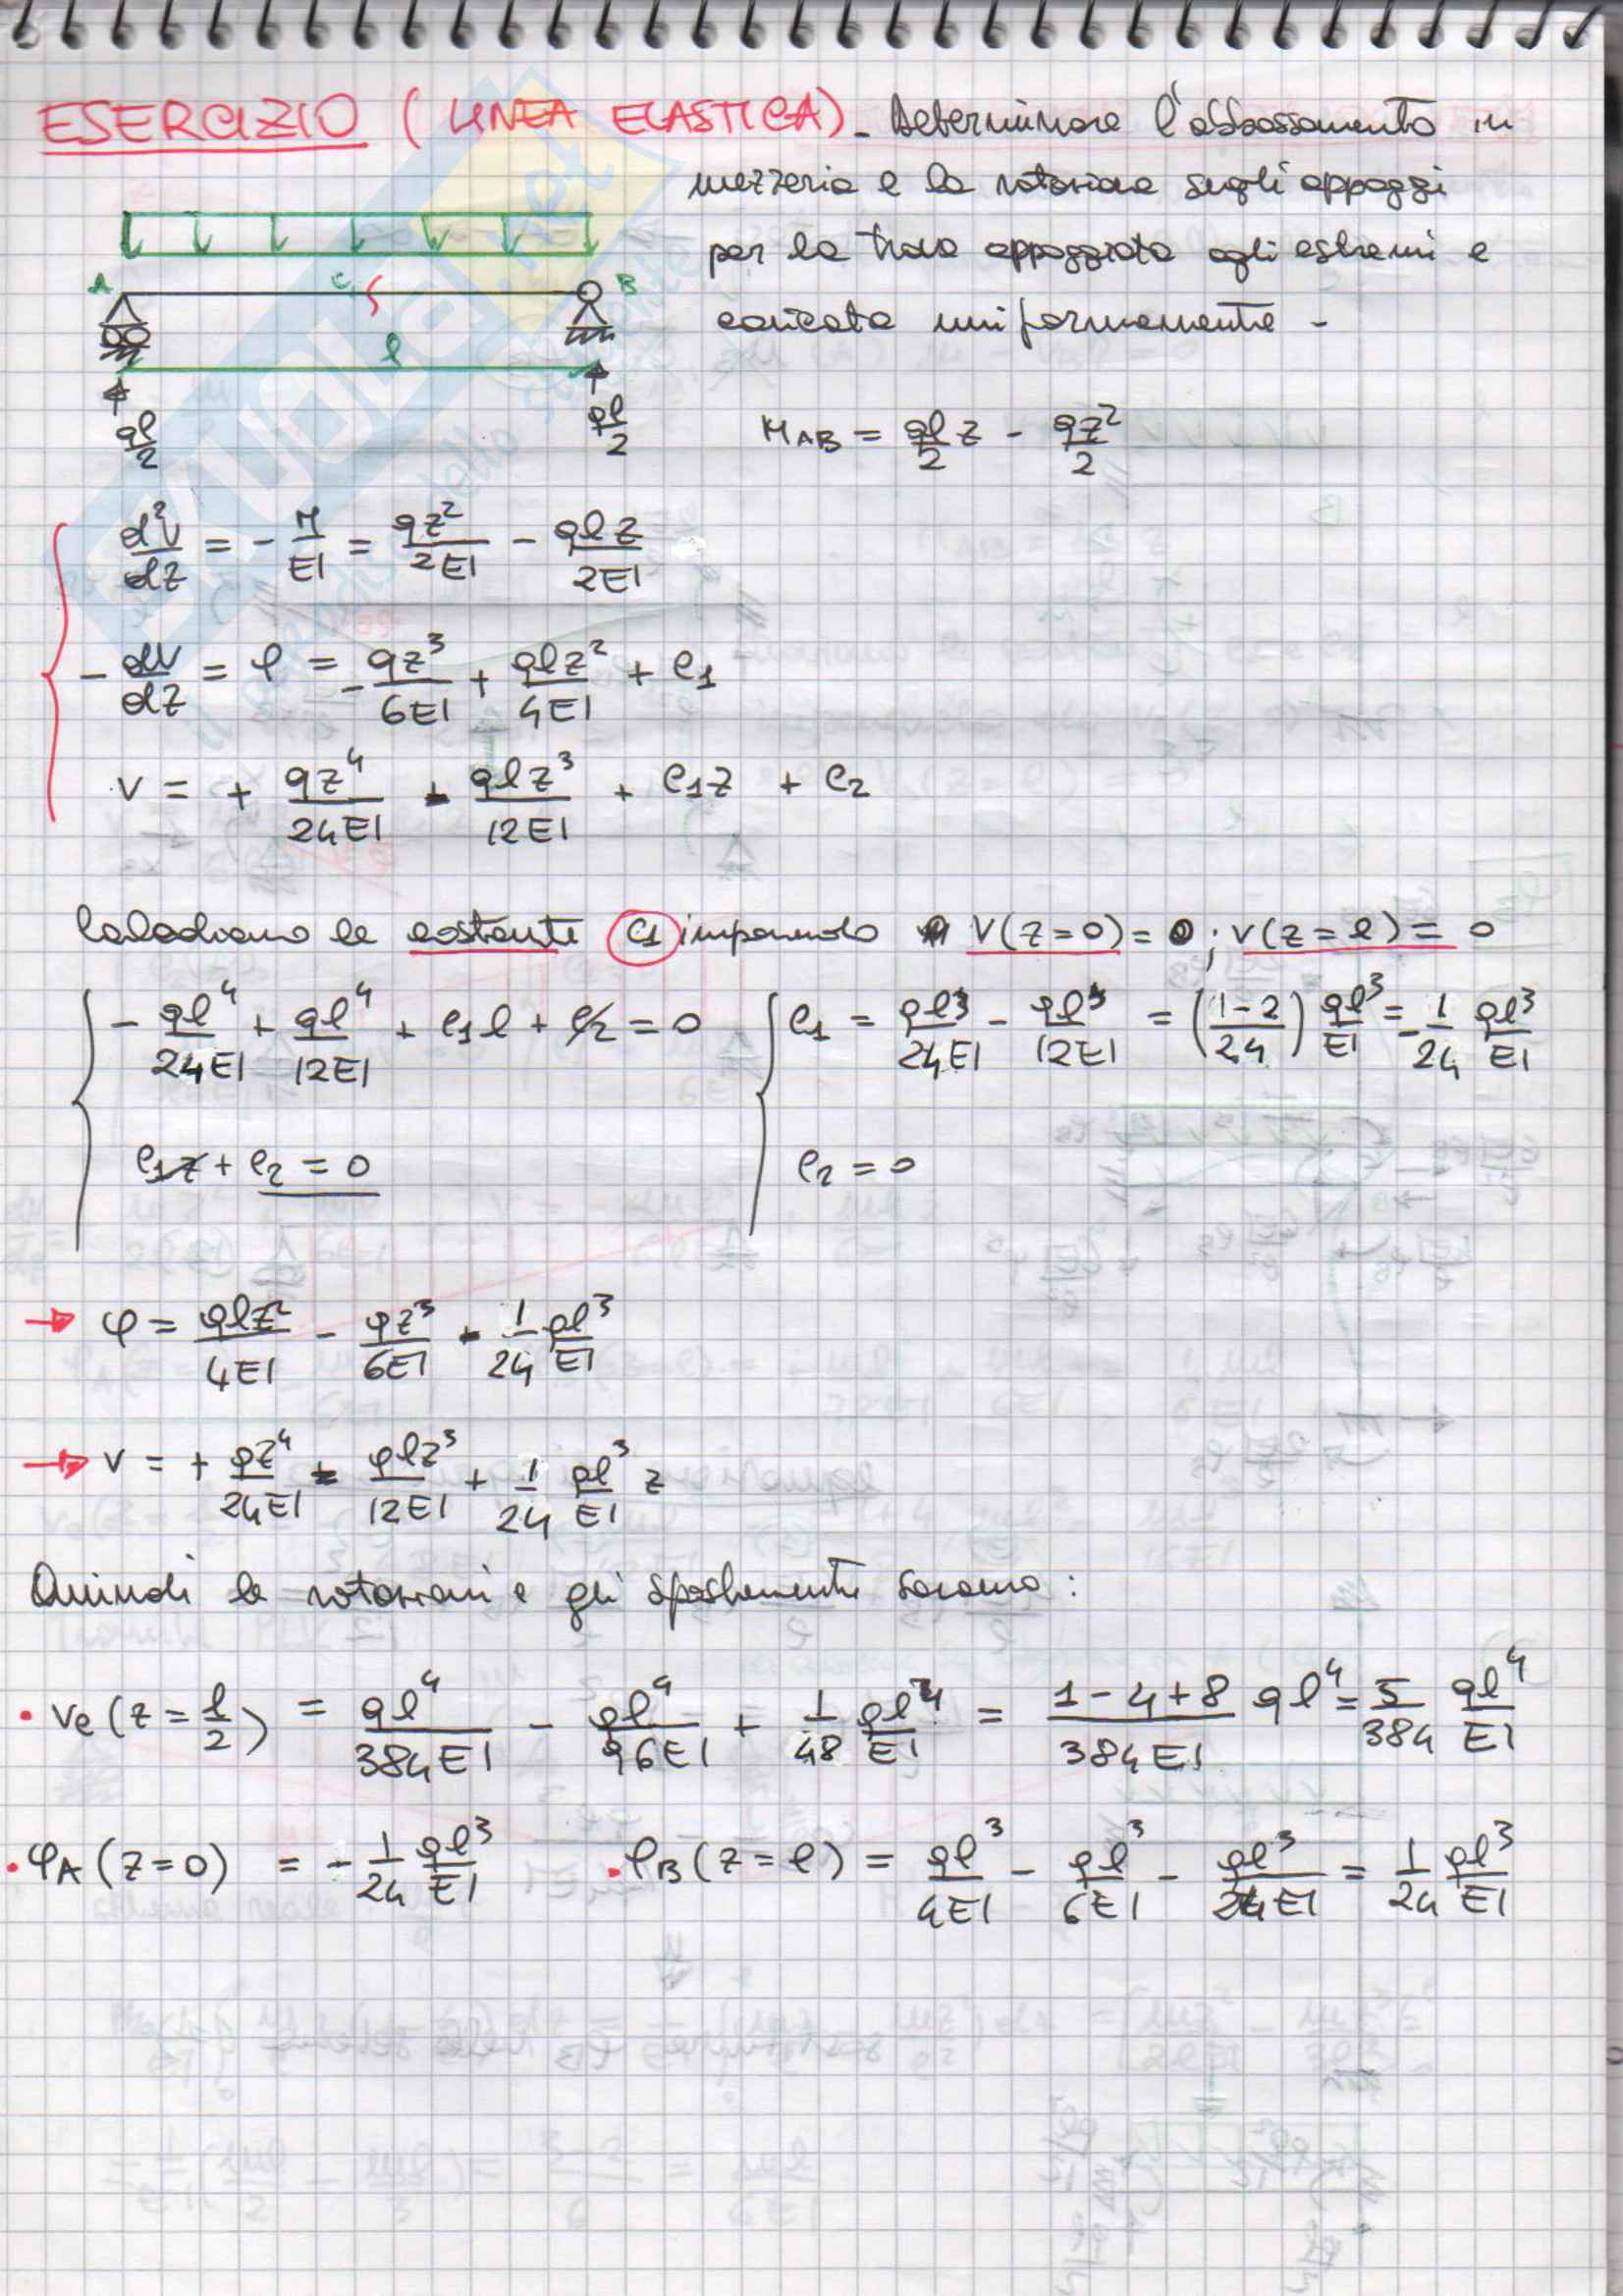 ESERCIZIO (LINEA ELASTICA)_ Determinare l'abbassamento in
mezzeria e la rotazione sugli appoggi
per la trave appoggiata agli estremi e
caricata uniformemente -
A C B
l
ql/2 ql/2
M_AB = ql/2 z - qz²/2
d²v/dz = - M/EI = qz²/2EI - qlz/2EI
- dv/dz = φ = - qz³/6EI + qlz²/4EI + C1
v = + qz⁴/24EI - qlz³/12EI + C1z + C2
Calcoliamo le costante C1 imponendo v(z=0) = 0 ; v(z=l) = 0
- ql⁴/24EI + ql⁴/12EI + C1l + C2 = 0
C1z + C2 = 0
C1 = ql³/24EI - ql³/12EI = (1-2/24) ql³/EI = - 1/24 ql³/EI
C2 = 0
→ φ = qlz²/4EI - qz³/6EI - 1/24 ql³/EI
→ v = + qz⁴/24EI - qlz³/12EI + 1/24 ql³/EI z
Quindi le rotazioni e gli spostamenti saranno :
• vc (z = l/2) = ql⁴/384EI - ql⁴/96EI + 1/48 ql⁴/EI = 1-4+8/384EI ql⁴ = 5/384 ql⁴/EI
• φA (z=0) = - 1/24 ql³/EI • φB (z=l) = ql³/4EI - ql³/6EI - ql³/24EI = 1/24 ql³/EI